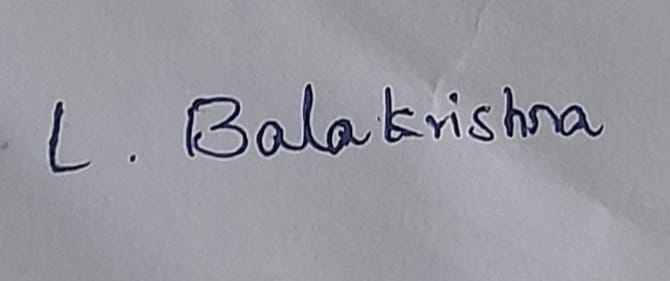 L. Balakrishna